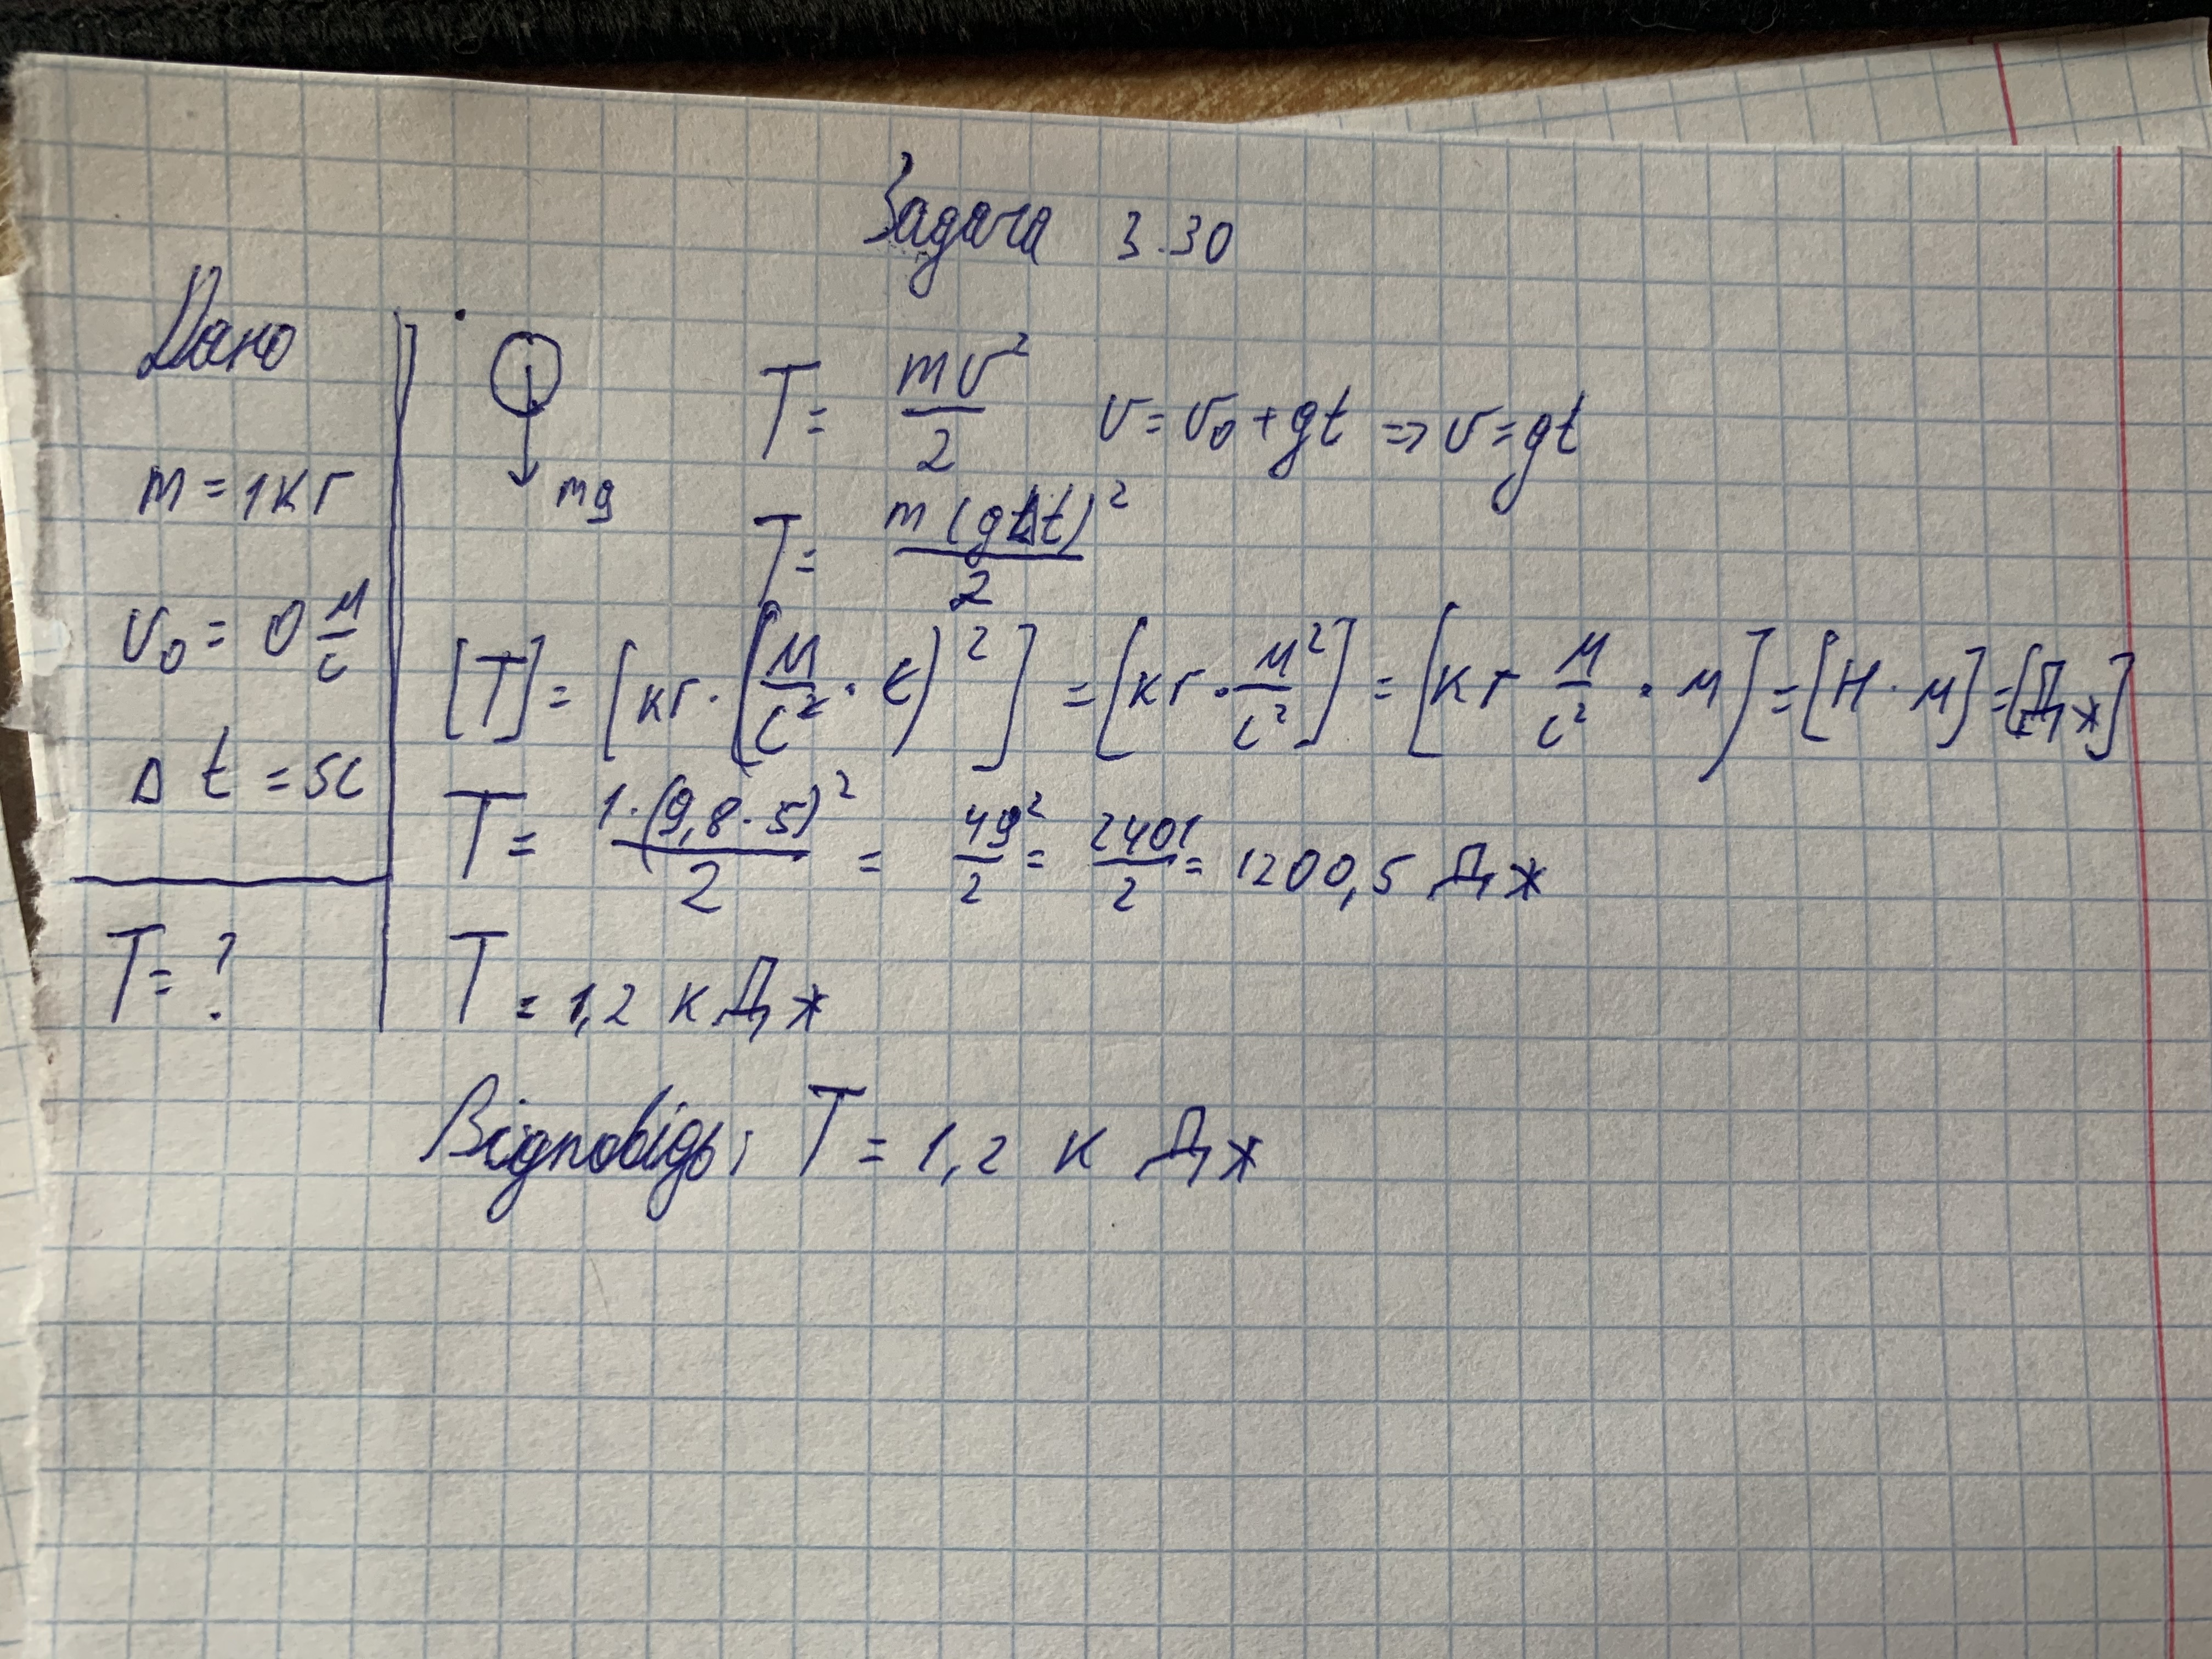 Задача 3.30
Дано
m = 1кг
v₀ = 0 м/с
Δt = 5с
T = ?
mg
T = mv²/2 v = v₀ + gt => v = gt
T = m(gΔt)²/2
[T] = [кг · (м/с² · с)²] = [кг · м²/с²] = [кг м/с² · м] = [Н · м] = [Дж]
T = 1·(9,8·5)²/2 = 49²/2 = 2401/2 = 1200,5 Дж
T = 1,2 кДж
Відповідь: T = 1,2 кДж